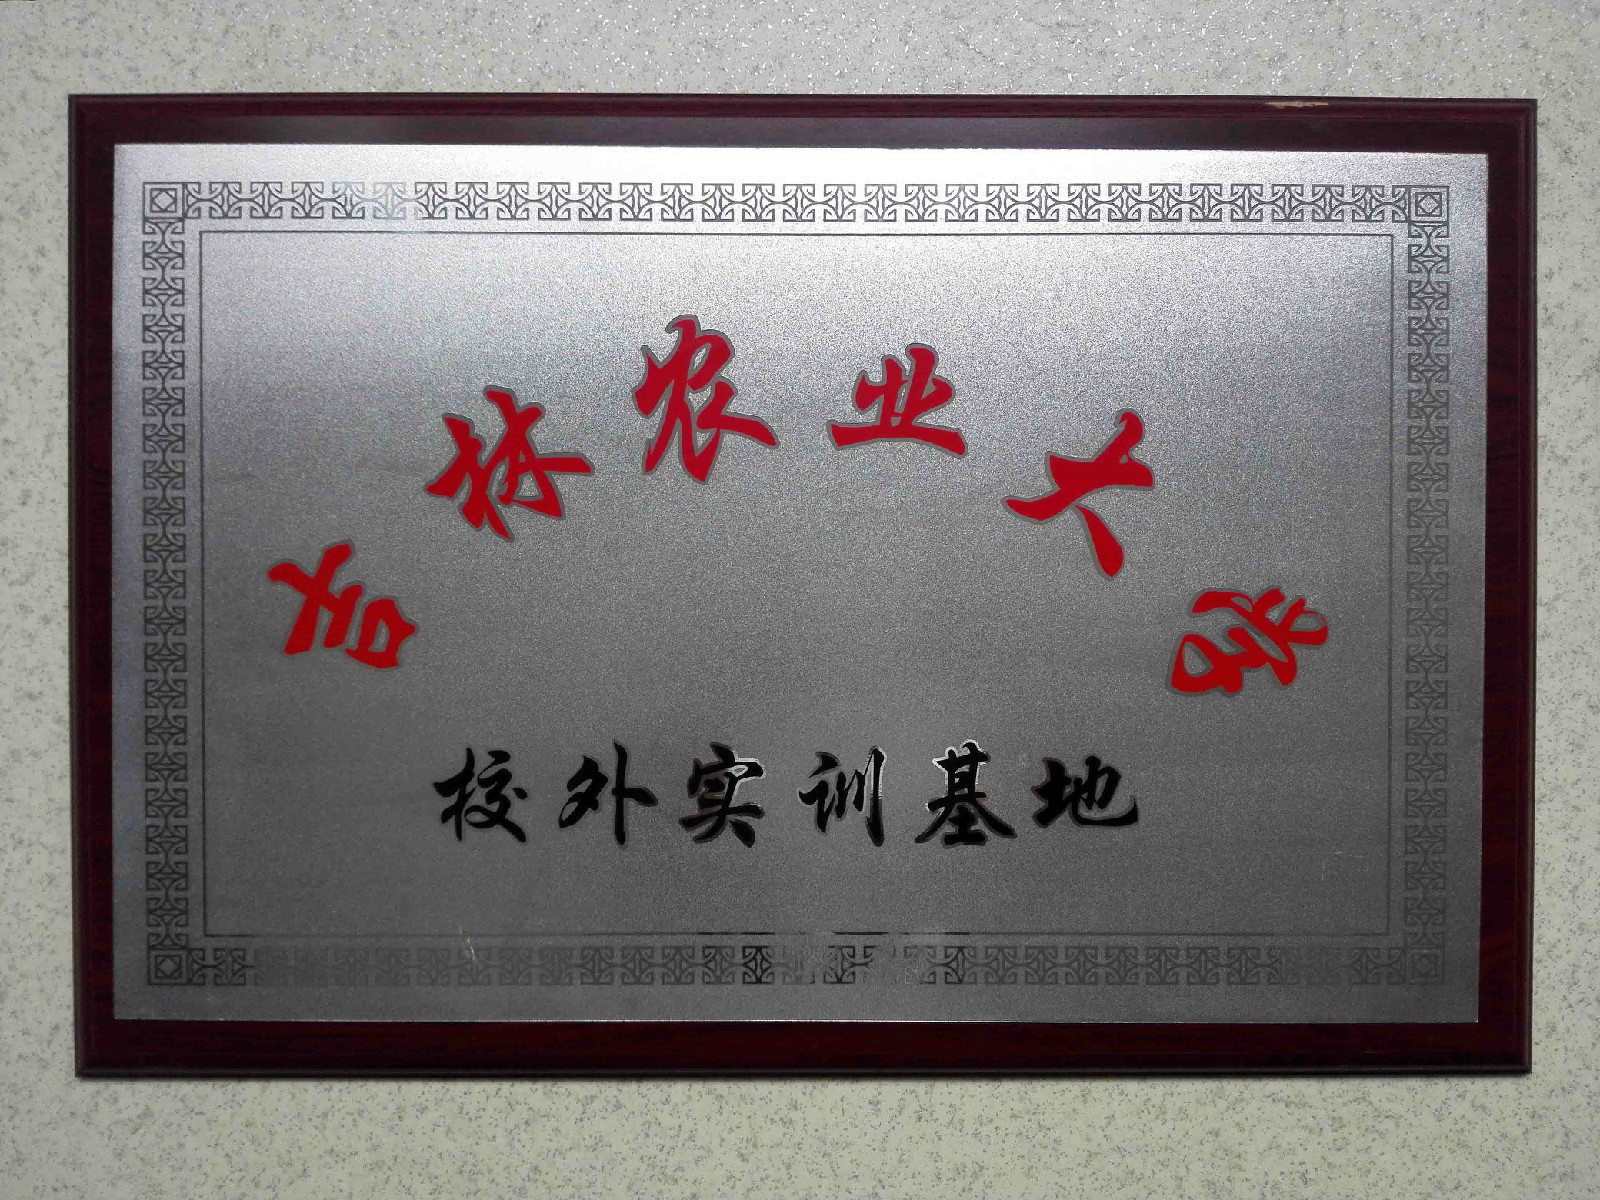 吉林农业大学
校外实训基地